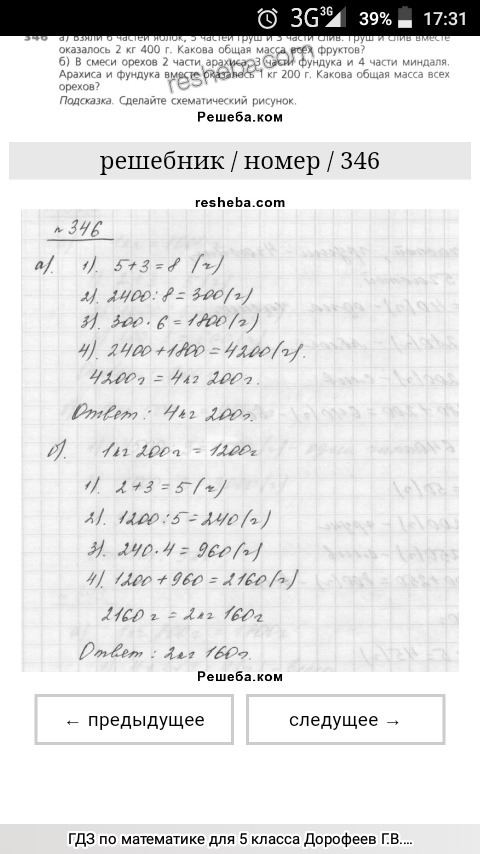 3G 3G 39% 17:31
346 а) Взяли 6 частей яблок, 5 частей груш и 3 части слив. Груш и слив вместе
оказалось 2 кг 400 г. Какова общая масса всех фруктов?
б) В смеси орехов 2 части арахиса, 3 части фундука и 4 части миндаля.
Арахиса и фундука вместе оказалось 1 кг 200 г. Какова общая масса всех
орехов?
Подсказка. Сделайте схематический рисунок.
resheba.com
Решеба.ком
решебник / номер / 346
resheba.com
№346
а). 1). 5+3=8 (ч)
2). 2400:8=300(г)
3). 300·6=1800(г)
4). 2400+1800=4200(г).
4200г=4кг 200г.
Ответ: 4кг 200г.
б). 1кг 200г=1200г
1). 2+3=5(ч)
2). 1200:5=240(г)
3). 240·4=960(г)
4). 1200+960=2160(г)
2160 г = 2кг 160г
Ответ: 2кг 160г.
Решеба.ком
← предыдущее
следущее →
ГДЗ по математике для 5 класса Дорофеев Г.В....